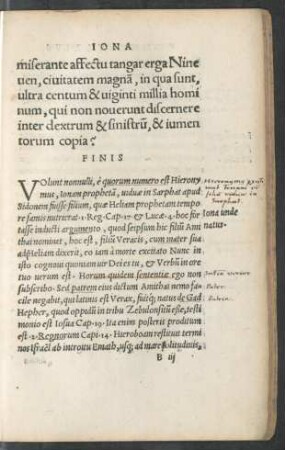 IONA
miserante affectu tangar erga Nine
uen, ciuitatem magnã, in qua sunt,
ultra centum & uiginti millia homi
num, qui non nouerunt discernere
inter dextrum & sinistrũ, & iumen
torum copia?
FINIS
VOlunt nonnulli, è quorum numero est Hierony
mus, Ionam prophetã, uiduæ in Sarphat apud
Sidonem fuisse filium, quæ Heliam prophetam tempo
re famis nutriuit. 1. Reg. Cap. 17. & Lucæ. 4. hoc for
tasse inducti argumento, quod scipsum hic filiũ Amit
hai nominat, hoc est, filiũ Veracis, cum mater sua
ad Heliam dixerit, eo iam à morte excitato Nunc in
isto cognoui quoniam uir Dei es tu, & Verbũ in ore
tuo uerum est. Horum quidem sententiæ ego non
subscribo. Sed patrem eius dictum Amithai nemo fa-
cile negabit, qui latinis est Verax, fuitq; natus de Gad
Hepher, quod oppidũ in tribu Zebulon sitũ esse, testi
monio est Iosuæ Cap. 19. Ita enim posterit proditum
est. 2. Regnorum Capit. 14. Hieroboam restituit termi
nos Israël ab introitu Emath, usq; ad mare solitudinis,
Iona unde
natus.
B iij